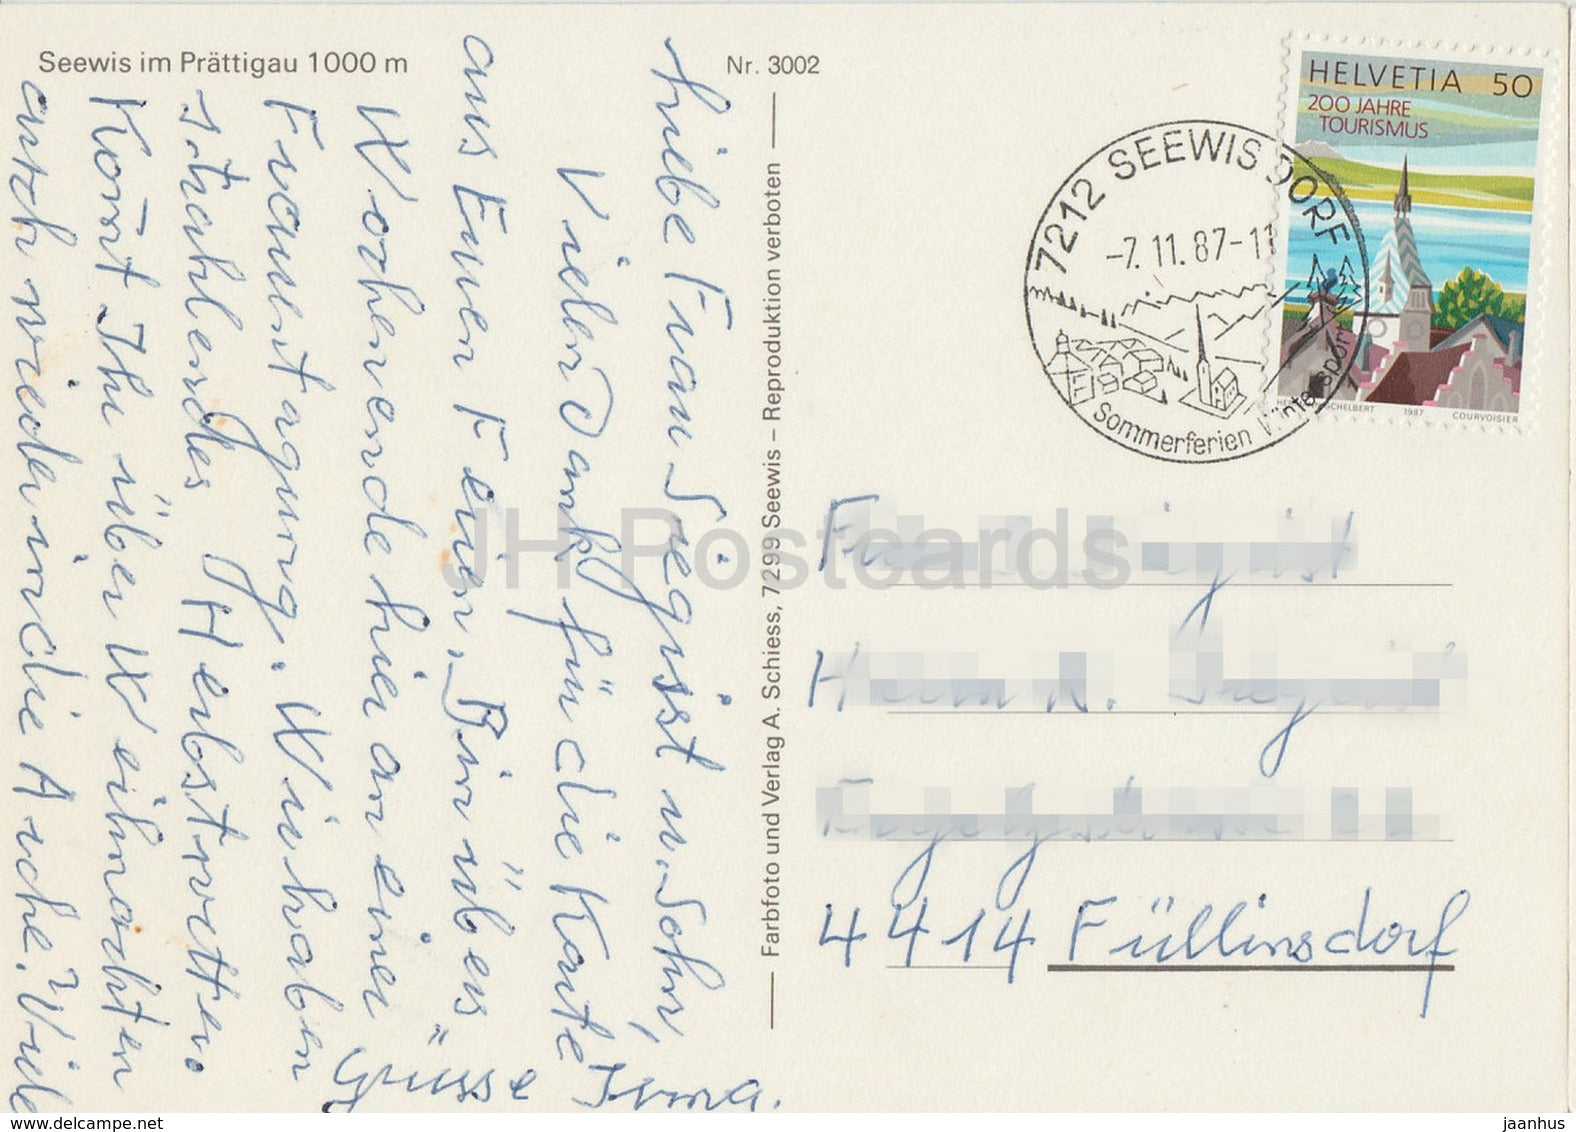 Seewis im Prättigau 1000 m
Nr. 3002
HELVETIA 50
200 JAHRE
TOURISMUS
7212 SEEWIS DORF
-7.11.87-11
Sommerferien Wintersport
1987
COURVOISIER
Liebe Frau Siegrist u. Sohn,
Vielen Dank für die Karte
aus Euren Ferien. Bin übers
Wochenende hier an einer
Frauentagung. Wir haben
strahlendes Herbstwetter.
Kommt Ihr über Weihnachten
auch wieder in die Arche? Viele
Grüsse Irma.
Farbfoto und Verlag A. Schiess, 7299 Seewis – Reproduktion verboten
4414 Füllinsdorf
JH Postcards
www.delcampe.net
jaanhus